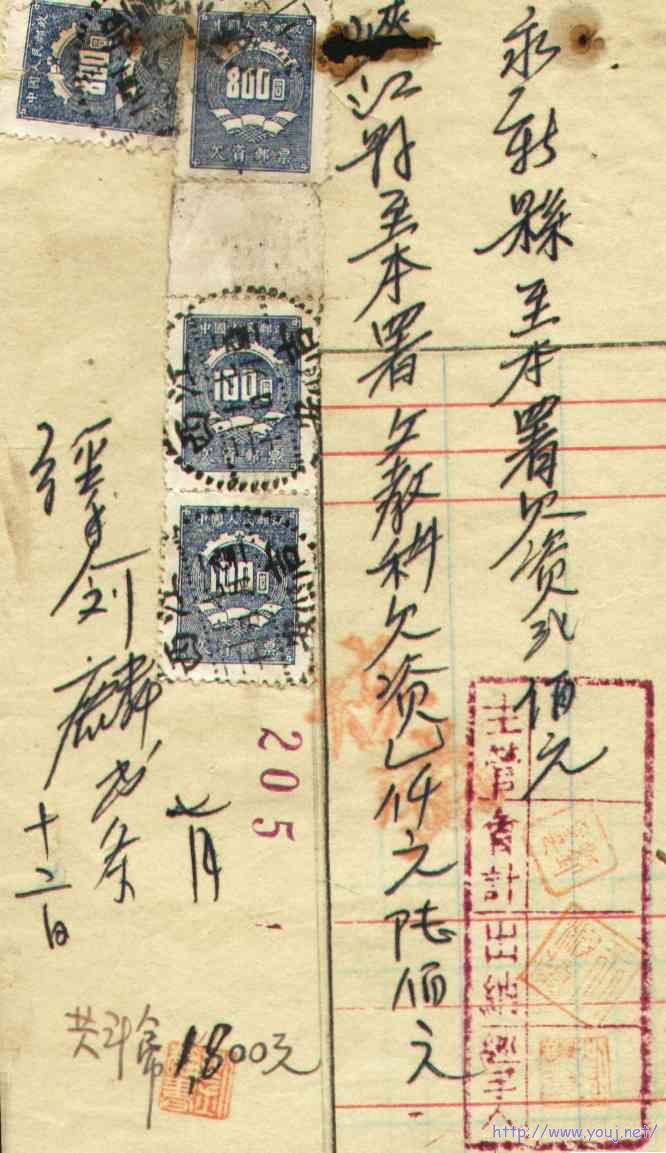 永新縣至本署欠资弍佰元
江县至本署文教科欠资仟元陆佰元
主管會計出納經手人
中國人民郵政
800圓
欠資郵票
中國人民郵政
800圓
中國人民郵政
100圓
欠資郵票
江西
中國人民郵政
100圓
欠資郵票
江西
205
七月
經手刘麟书条
十二日
共 1,800元
http://www.youj.net/